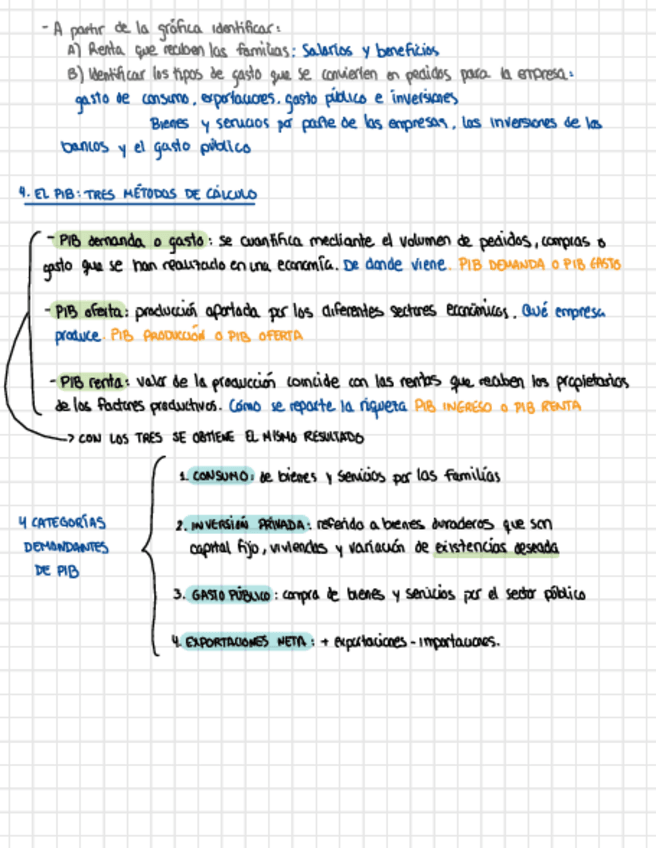 - A partir de la gráfica identificar:
A) Renta que reciben las familias: Salarios y beneficios
B) Identificar los tipos de gasto que se convierten en pedidos para la empresa:
gasto de consumo, exportaciones, gasto público e inversiones
Bienes y servicios por parte de las empresas, las inversiones de los
bancos y el gasto público
4. EL PIB: TRES MÉTODOS DE CÁLCULO
- PIB demanda o gasto: se cuantifica mediante el volumen de pedidos, compras o
gasto que se han realizado en una economía. De donde viene. PIB DEMANDA O PIB GASTO
- PIB oferta: producción aportada por los diferentes sectores económicos. Qué empresa
produce. PIB PRODUCCIÓN O PIB OFERTA
- PIB renta: valor de la producción coincide con las rentas que reciben los propietarios
de los factores productivos. Cómo se reparte la riqueza PIB INGRESO O PIB RENTA
→ CON LOS TRES SE OBTIENE EL MISMO RESULTADO
4 CATEGORÍAS
DEMANDANTES
DE PIB
1. CONSUMO: de bienes y servicios por las familias
2. INVERSIÓN PRIVADA: referido a bienes duraderos que son
capital fijo, viviendas y variación de existencias deseada
3. GASTO PÚBLICO: compra de bienes y servicios por el sector público
4. EXPORTACIONES NETA: + exportaciones - importaciones.